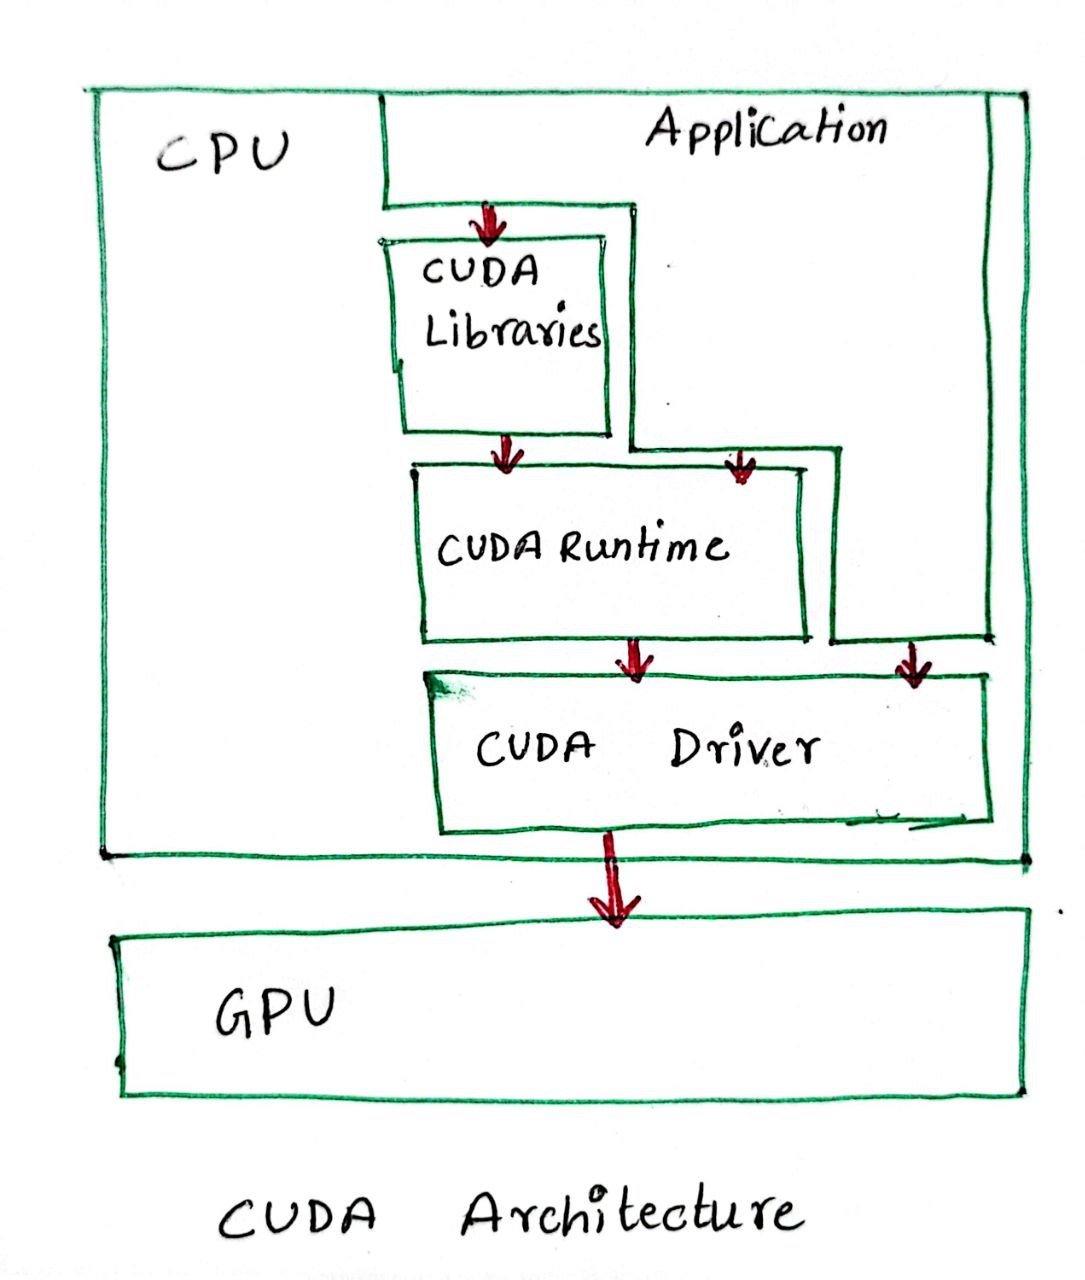 CPU
Application
CUDA
Libraries
CUDA Runtime
CUDA Driver
GPU
CUDA Architecture